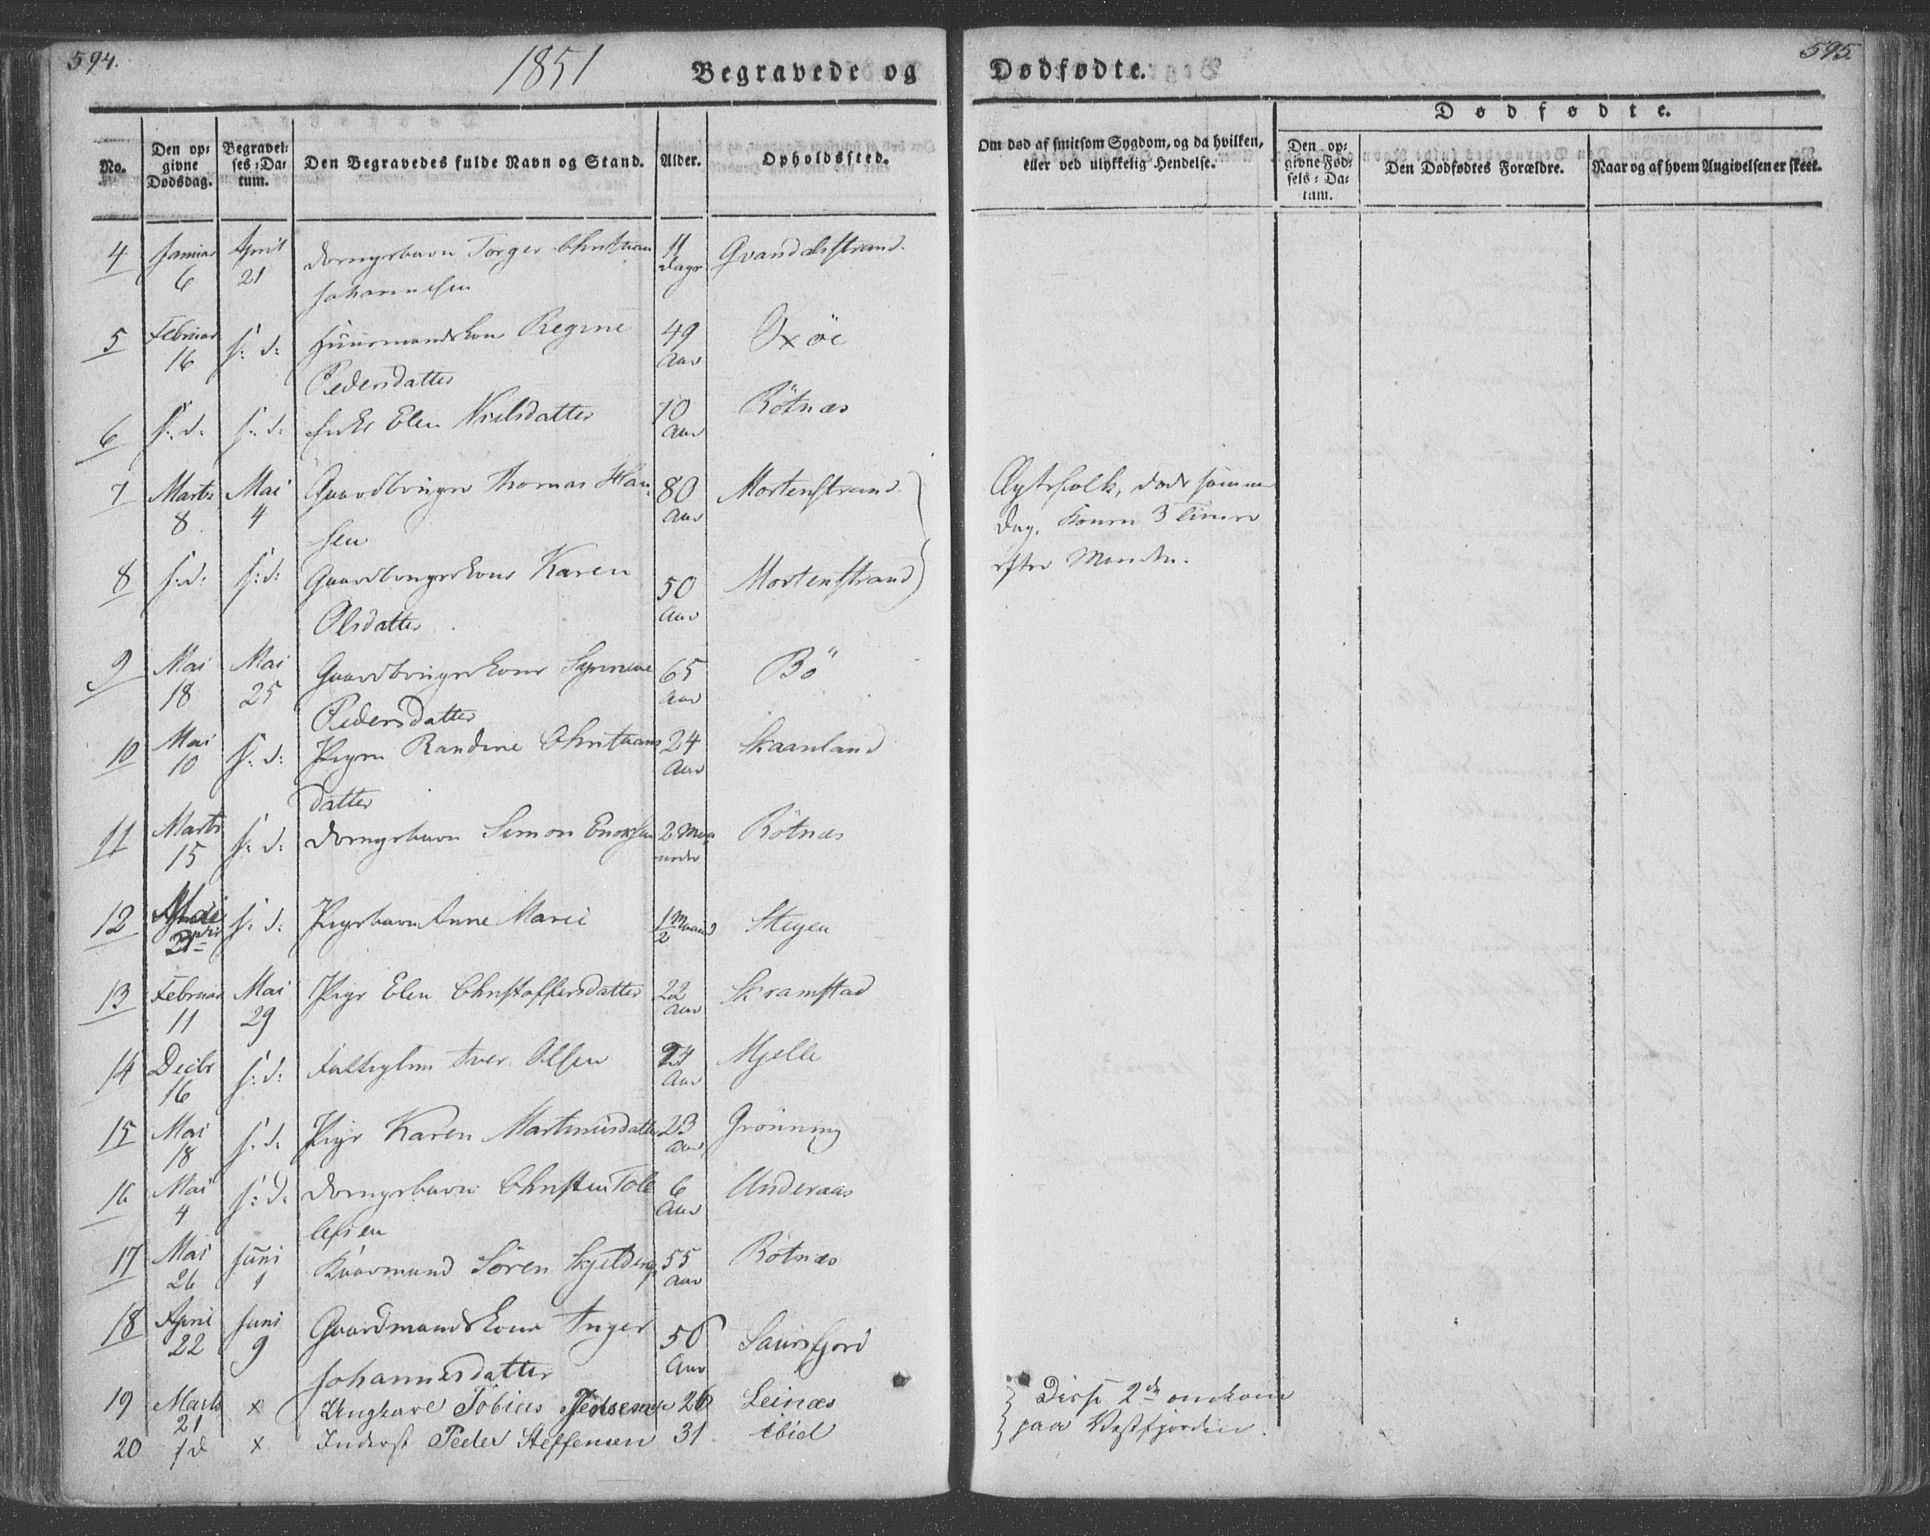 594.
1851
Begravede og
Dødfødte.
595.
Dødfødte.
No.
Den op=
givne
Dødsdag.
Begravel=
ses=Da=
tum.
Den Begravedes fulde Navn og Stand.
Alder.
Opholdssted.
Om død af smitsom Sygdom, og da hvilken,
eller ved ulykkelig Hendelse.
Den op=
givne Fød=
sels=Da=
tum.
Den Dødfødtes Forældre.
Naar og af hvem Angivelsen er skeet.
4 Januar April Drengebarn Torger Christian 11 Gvandalsstrand.
6 21 Johannesen Dage
5 Februar s: d: Huusmandskone Regine 49 Oxöe
16 Pedersdatter Aar
6 s: d. s: d: Enke Elen Nielsdatter 70 Rötnæs
Aar
7 Marts Mai Gaardbruger Thomas Han- 80 Mortenstrand. Ægtefolk, døde samme
8. 4 sen Aar Dag, Konen 3 Timer
8 s: d: s: d: Gaardbrugerkone Karen 50 Mortenstrand efter Manden.
Olsdatter Aar
9 Mai Mai Gaardbrugerkone Synneve 65 Bö
18 25 Pedersdatter Aar
10 Mai s: d: Pigen Randine Christians 24 Skaanland
10 datter Aar
11 Marts s: d: Drengebarn Simon Enoksen 2 Maa Rötnæs
15 neder
12 s: d: Pigebarn Anne Marie 1/2 Maaned Stegen
21
13 Februar Mai Pige Elen Christoffersdatter 22 Skramstad
11 29 Aar
14 Decbr s: d: Fattiglem Iver Olsen Mjelle
16 Aar
15 Mai s: d. Pige Karen Martinusdatter 23 Grönning
18 Aar
16 Mai s: d. Drengebarn Christen Tol 6 Underaas
4 lefsen Aar
17 Mai Juni Kaarmand Sören 55 Rötnæs
26 1 Aar
18 April Juni Gaardmandskone Inger 56 Saursfjord
22 9 Johannesdatter Aar
19 Marts x Ungkarl Tobias 26 Leinæs Disse 2de omkom
21
20 x Inderst Peder Steffensen 31 ibid paa Vestfjorden.